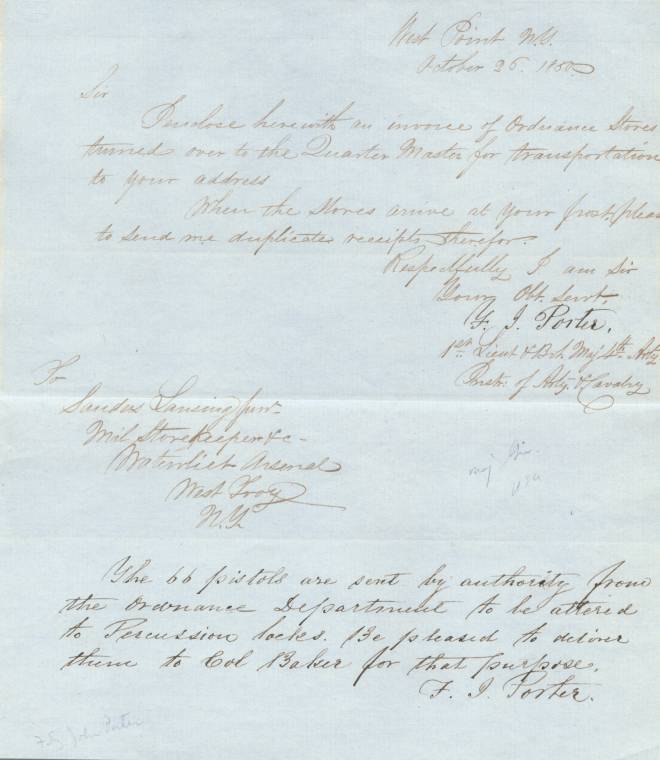 West Point N.Y.
October 26. 1850
Sir
I enclose herewith an invoice of Ordnance Stores
turned over to the Quarter Master for transportation
to your address
When the Stores arrive at your post, pleas
to send me duplicate receipts therefor.
Respectfully I am Sir
Your Obt. Servt.
F. J. Porter.
1st. Lieut & Bvt. Maj 4th. Arty
Instr. of Arty. & Cavalry
To
Sanders Lansing Junr.
Mil Storekeeper &c-
Watervliet Arsenal
West Troy
N.Y.
maj Gen.
USA
The 66 pistols are sent by authority from
the Ordnance Department to be altered
to Percussion locks. Be pleased to deliver
them to Col Baker for that purpose.
F. J. Porter.
John Porter